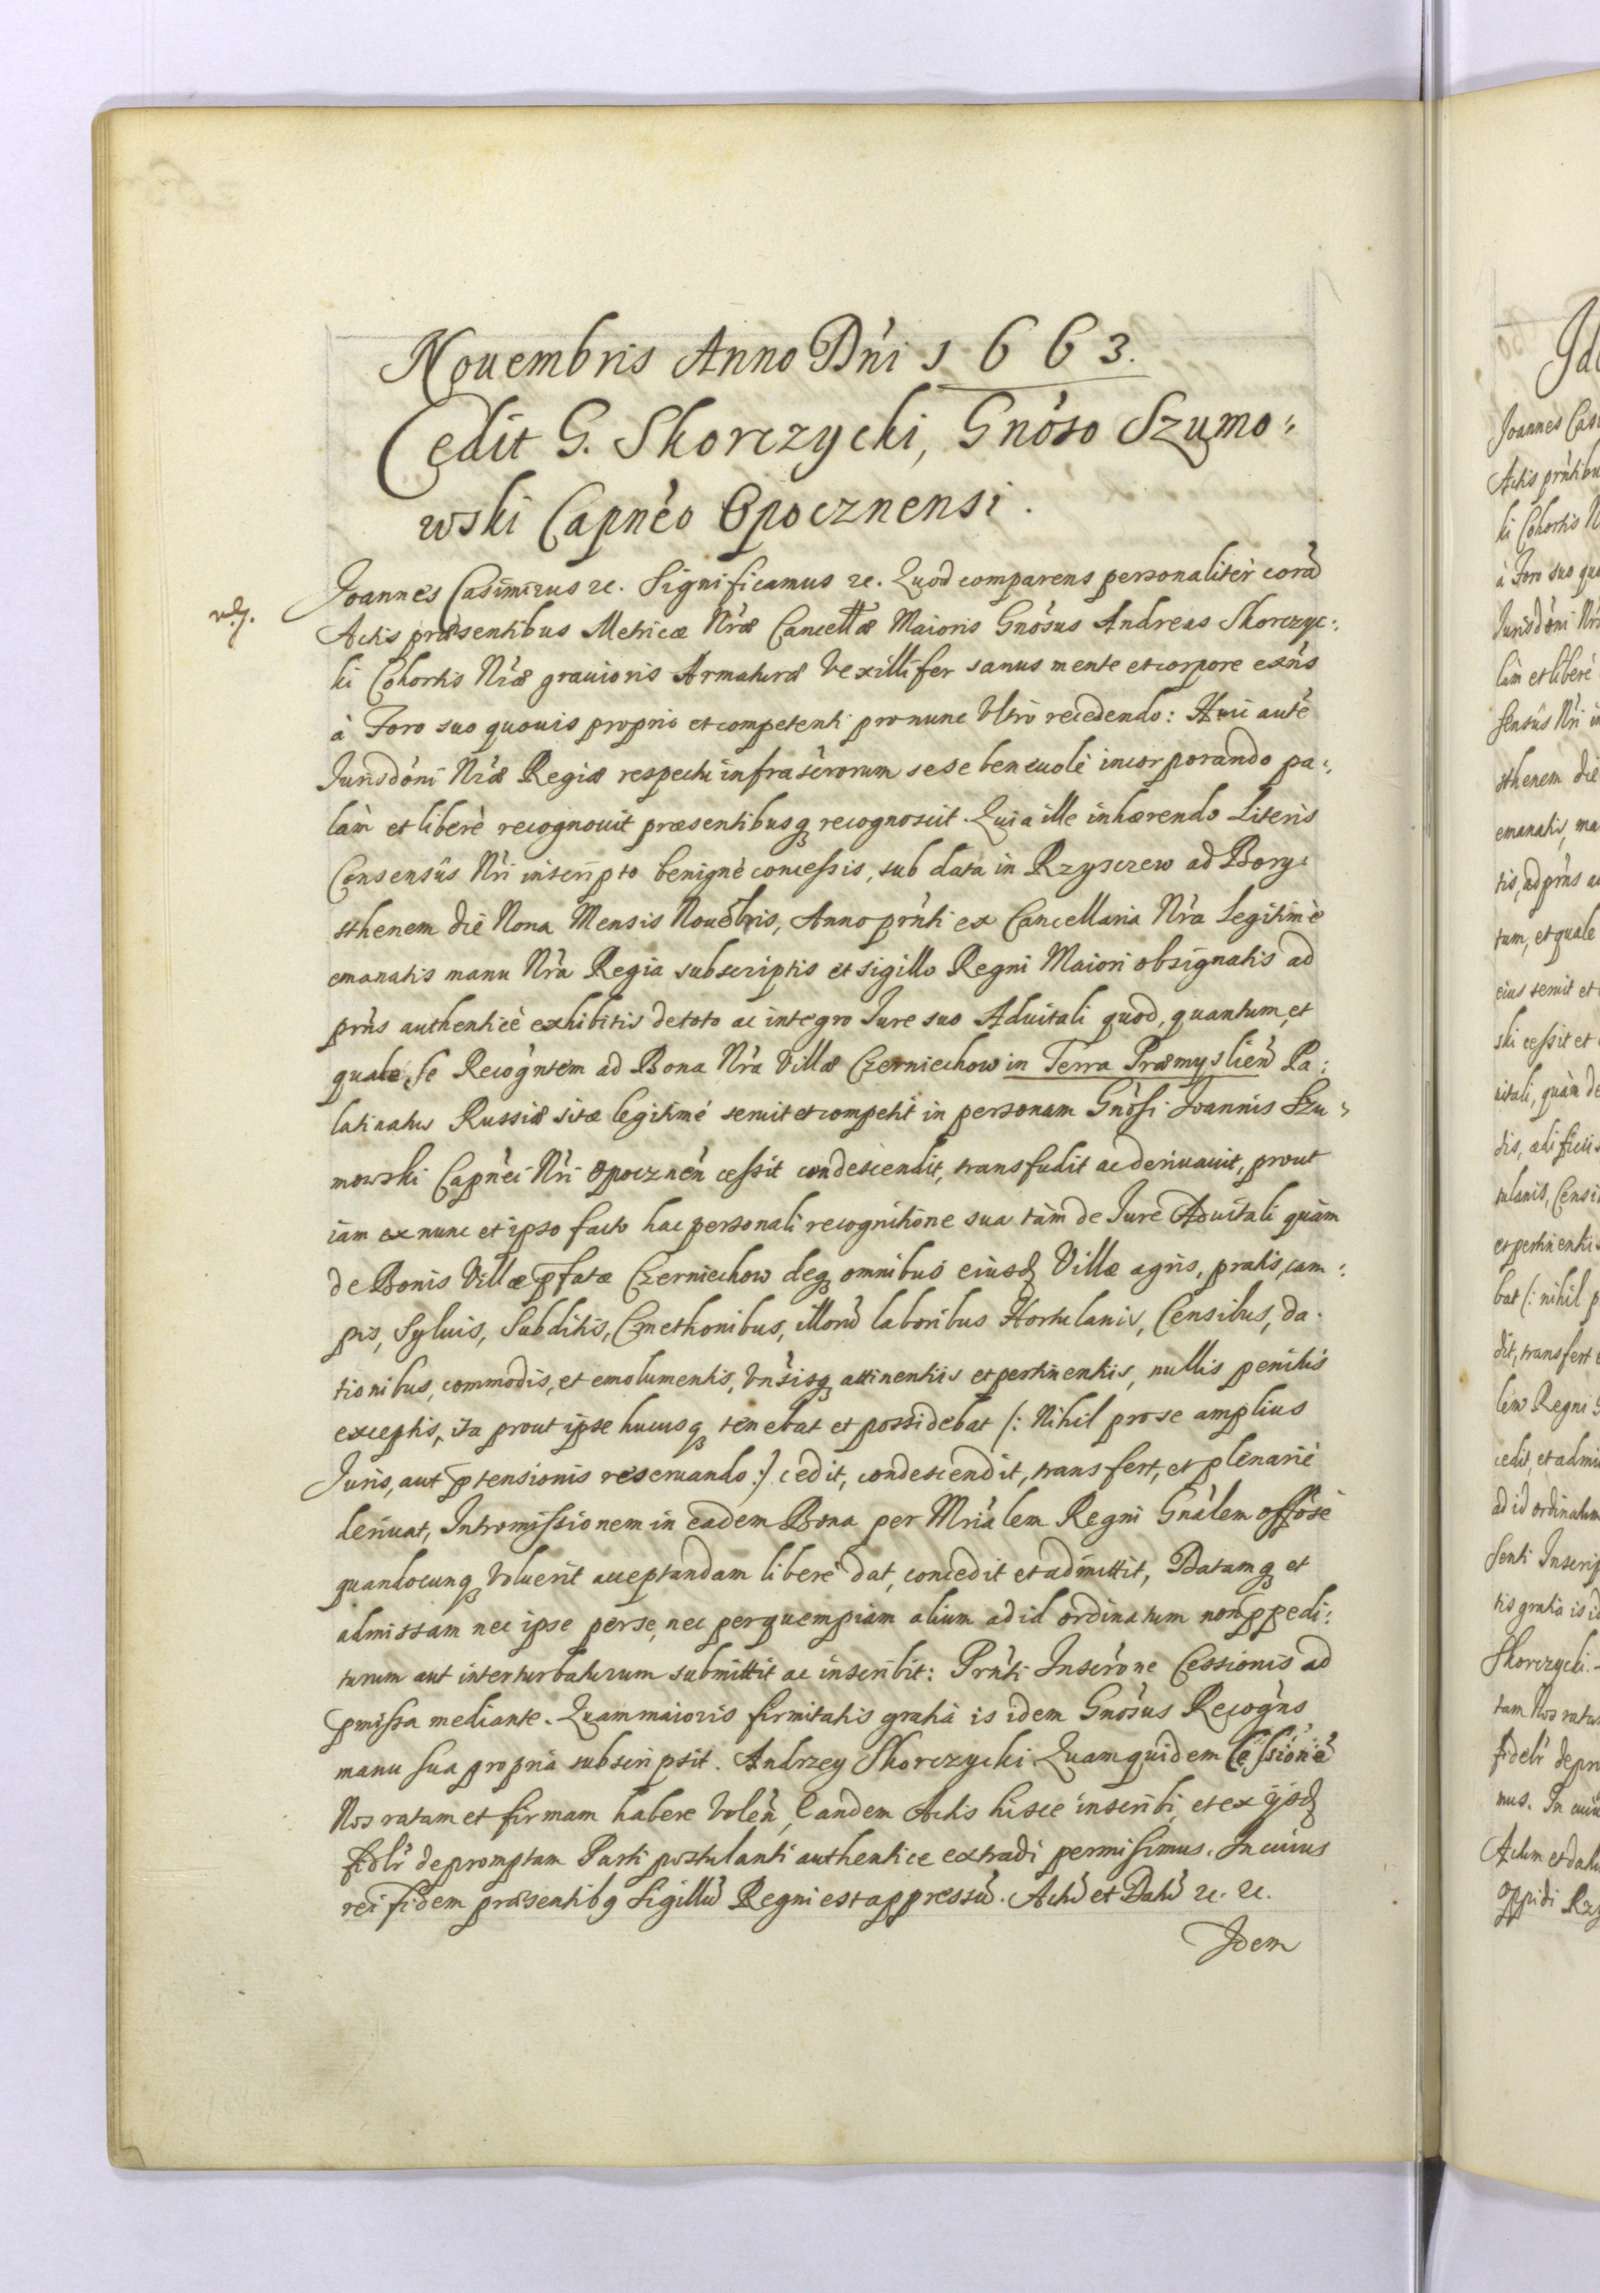 Nouembris Anno Dńi 1663.
Cedit G. Skorczycki, Gnóso Szumo:
wski Capnéo Opocznensi.
Joannes Casimirus &c. Significamus &c. Quod comparens personaliter corā
Actis præsentibus Metricæ Nræ Cancellæ Maioris Gnósus Andreas Skorczyc:
ki Cohortis Nræ grauioris Armaturæ Vexillifer sanus mente et corpore exńs
à Foro suo quouis proprio et competenti pro nunc Vltro recedendo: Huic autē
Jurisdóni Nræ Regiæ respectu infrascrorum sese beneuolè incorporando pa:
làm et liberè recognouit præsentibusq recognoscit. Quia ille inhærendo Literis
Consensûs Nri inscripto benignè concessis, sub data in Rzyszczew ad Bory:
sthenem die Nona Mensis Nouēbris, Anno prńti ex Cancellaria Nra Legitimè
emanatis manu Nra Regia subscriptis et sigillo Regni Maiori obsignatis ad
prńs authenticè exhibitis de toto ac integro Jure suo Aduitali quod, quantum, et
quale, se Recogńtem ad Bona Nra Villæ Czerniechow in Terra Præmysliēn Pa:
latinatus Russiæ sitæ legitimé seruit et competit in personam Gnósi Joannis Szu:
mowski Capnéi Nri Opocznēn cessit condescendit, transfudit ac deriuauit, prout
iam ex nunc et ipso facto hac personali recognitione sua tàm de Jure Aduitali quàm
de Bonis Villæ pfatæ Czerniechow deq omnibus eiusd Villæ agris, pratis, cam:
pis, Syluis, Subditis, Cmethonibus, illorū laboribus Hortulanis, Censibus, da:
tionibus, commodis, et emolumentis, Vnśisq attinentiis et pertinentiis, nullis penitùs
exceptis, ita prout ipse hucusq tenebat et possidebat /: Nihil pro se amplius
Juris, aut ptensionis reseruando :/ cedit, condescendit, transfert, et plenariè
deriuat, Intromissionem in eadem Bona per Mriálem Regni Gnálem offósè
quandocunq Voluerit acceptandam liberè dat, concedit et admittit, Datamq et
admissam nec ipse per se, nec per quempiam alium ad id ordinatum non ppedi:
turum aut interturbaturum submittit ac inscribit: Prńti Inscróne Cessionis ad
pmissa mediante. Quam maioris firmitatis gratiâ is idem Gnósus Recogńs
manu sua propriâ subscripsit. Andrzey Skorczycki Quam quidem Cessionē
Nos ratam et firmam habere Volēn, Eandem Actis hisce inscribi, et ex ijsd
fidlr depromptam Parti postulanti authentice extradi permisimus. In cuius
rei fidem præsentibq Sigillū Regni est appressū. Actū et Datū &c. &c.
Idem